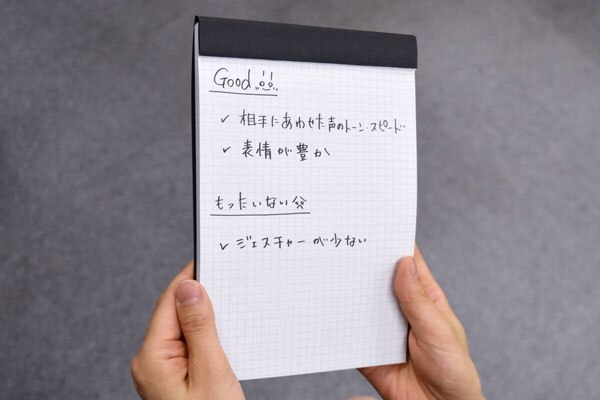 Good!!
✓ 相手にあわせた声のトーン・スピード
✓ 表情が豊か
もったいない
✓ ジェスチャーが少ない